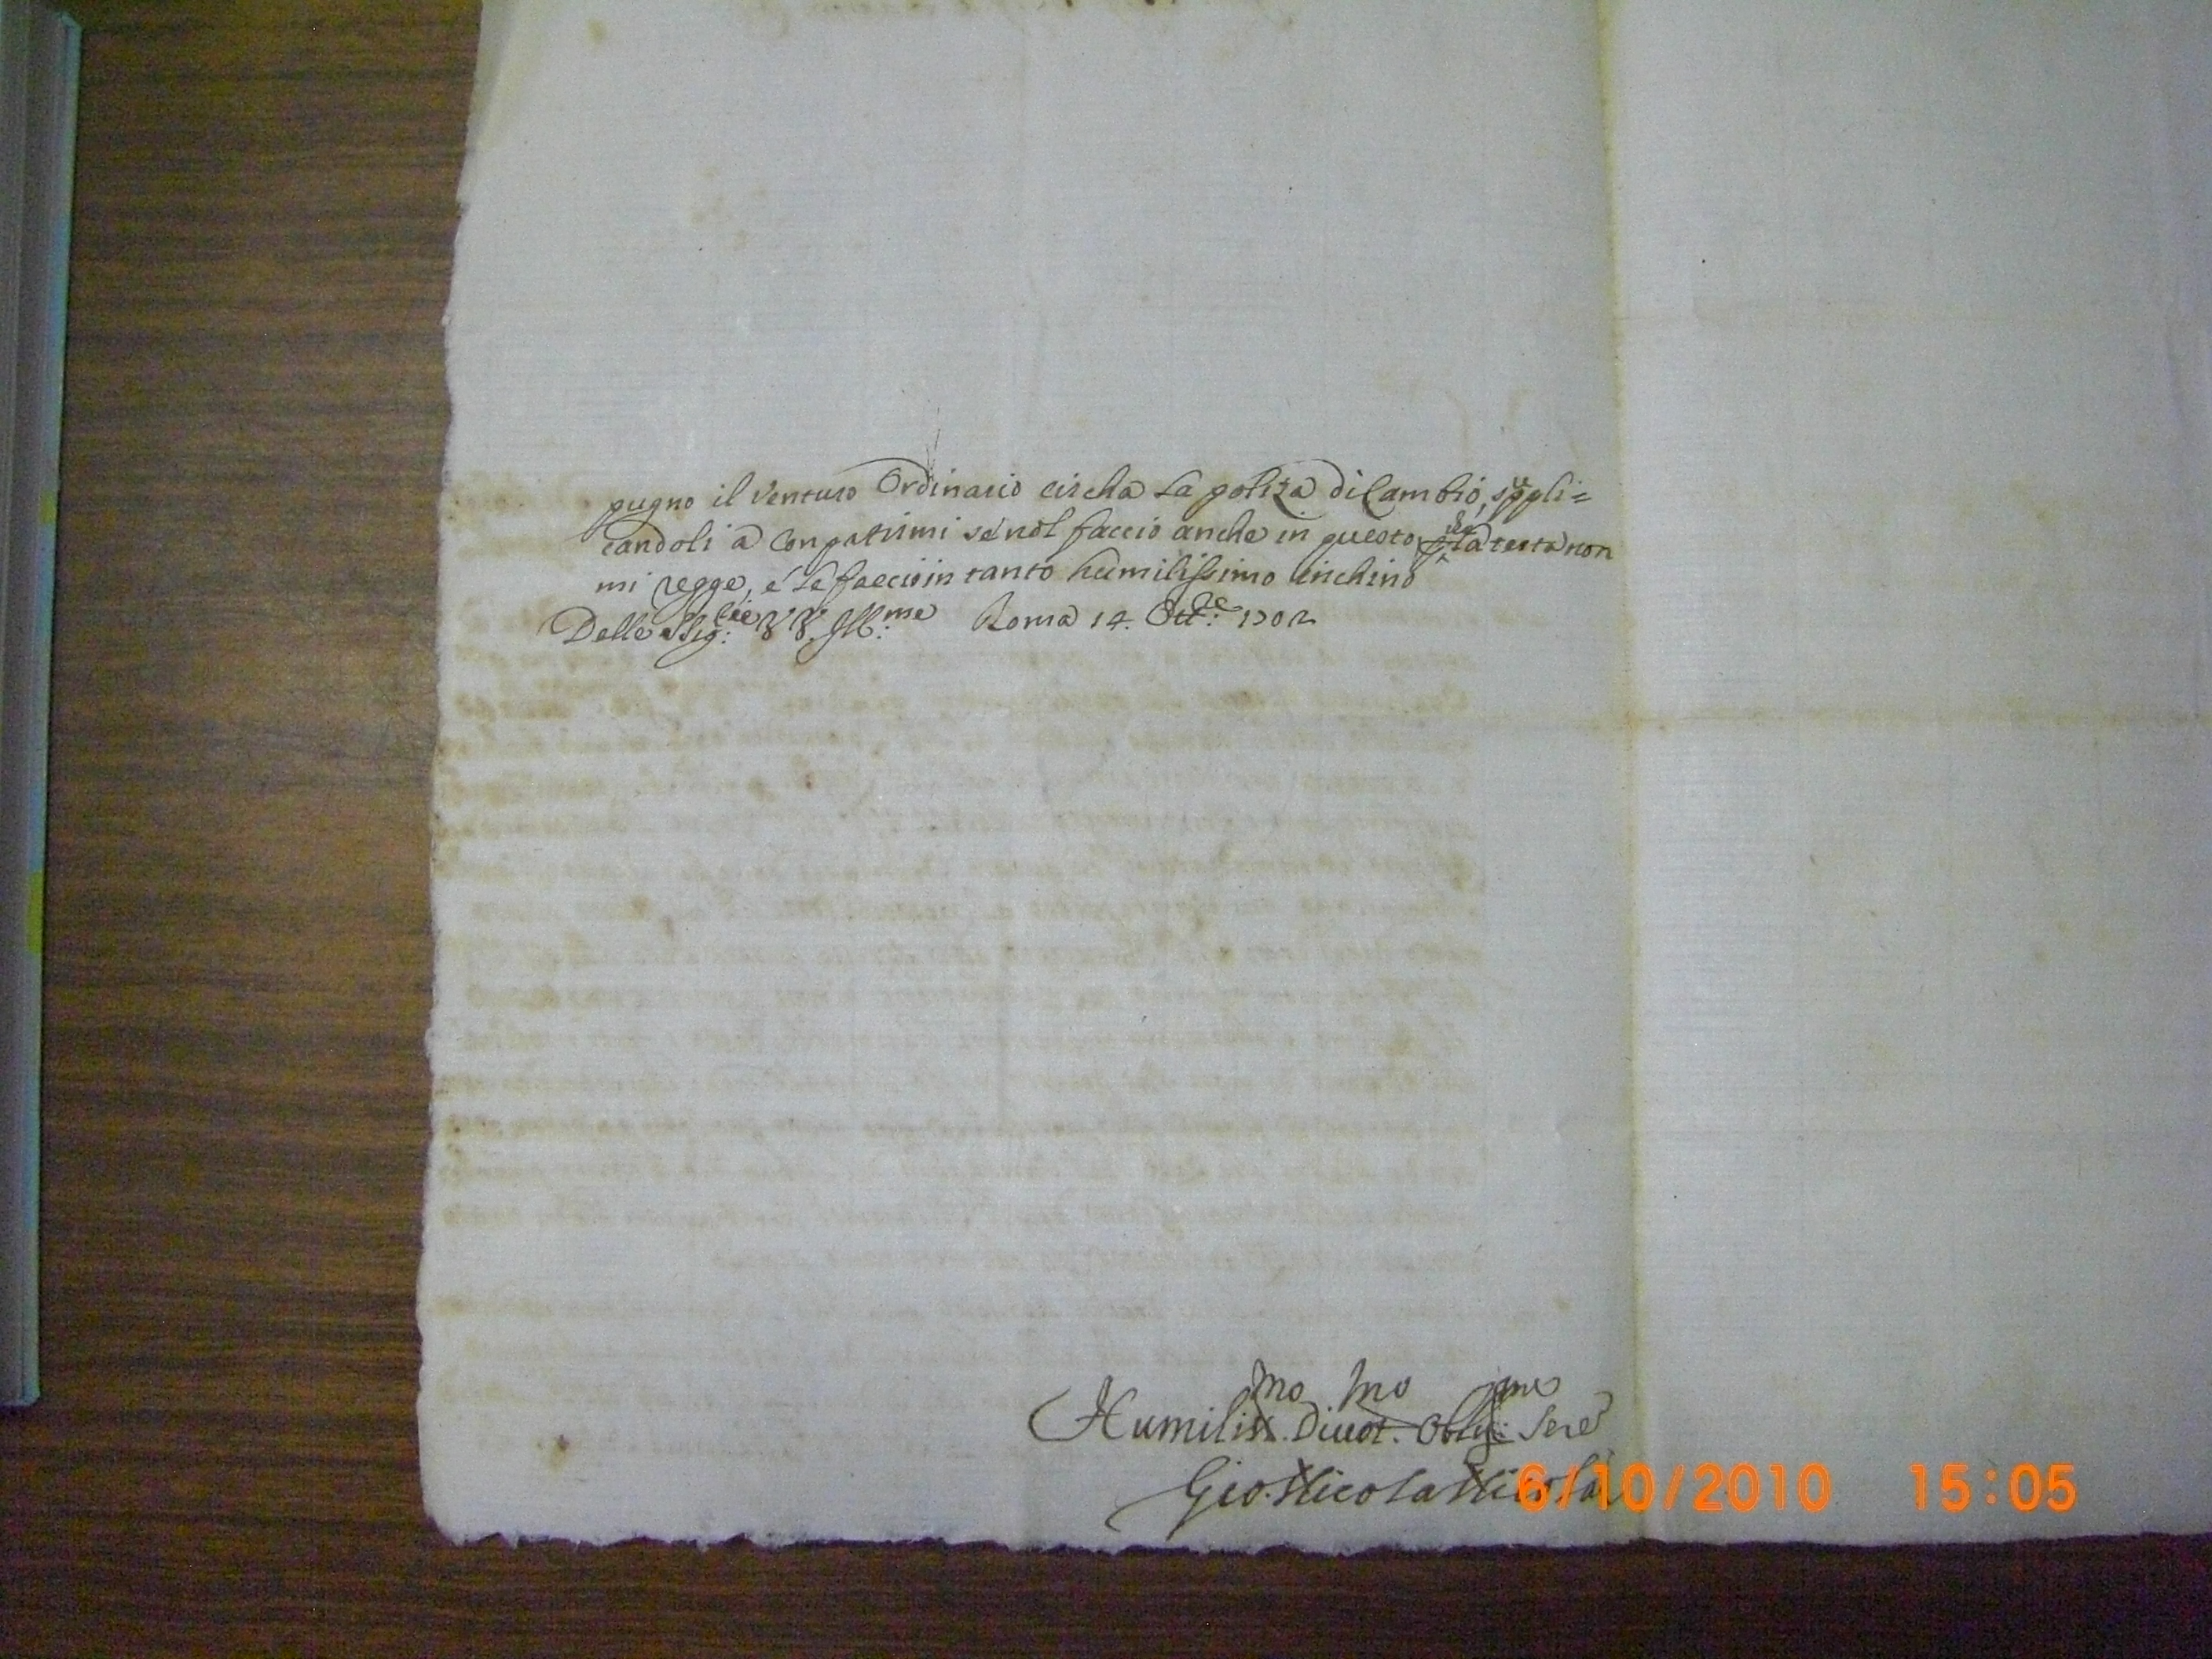 pugno il venturo Ordinario circha la poliza di Cambio, suppli=
candoli à Conpatirmi sè nol faccio anche in questo, chè la testa non
mi regge, è lè faccio in tanto humilissimo inchino
Delle Sig:rie VV. Ill:me Roma 14. Ott:re 1702
Humiliss.mo Divot.mo Oblig:mo Sere
Gio. Nicola Nicolai
6/10/2010 15:05